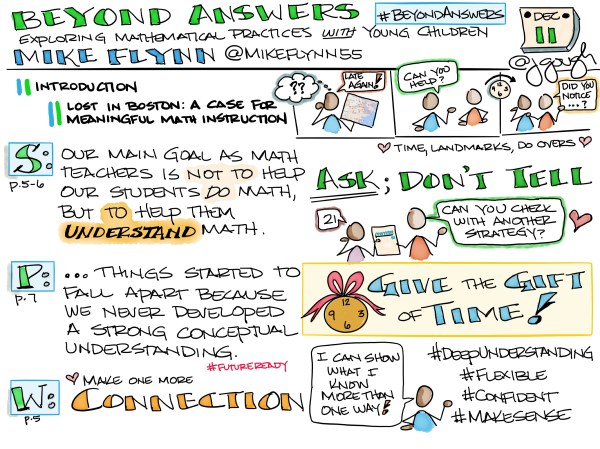 BEYOND ANSWERS
#BEYONDANSWERS
EXPLORING MATHEMATICAL PRACTICES WITH YOUNG CHILDREN
MIKE FLYNN @MIKEFLYNN55
DEC
11
@jgough
INTRODUCTION
LOST IN BOSTON: A CASE FOR
MEANINGFUL MATH INSTRUCTION
??
LATE
AGAIN!
CAN YOU
HELP?
DID YOU
NOTICE
...?
TIME, LANDMARKS, DO OVERS
S:
p.5-6
OUR MAIN GOAL AS MATH
TEACHERS IS NOT TO HELP
OUR STUDENTS DO MATH,
BUT TO HELP THEM
UNDERSTAND MATH.
ASK; DON'T TELL
21
CAN YOU CHECK
WITH ANOTHER
STRATEGY?
P:
p.7
... THINGS STARTED TO
FALL APART BECAUSE
WE NEVER DEVELOPED
A STRONG CONCEPTUAL
UNDERSTANDING.
#FUTUREREADY
12
9 3
6
GIVE THE GIFT
OF TIME!
W:
p.5
MAKE ONE MORE
CONNECTION
I CAN SHOW
WHAT I
KNOW
MORE THAN
ONE WAY!
#DEEPUNDERSTANDING
#FLEXIBLE
#CONFIDENT
#MAKESENSE